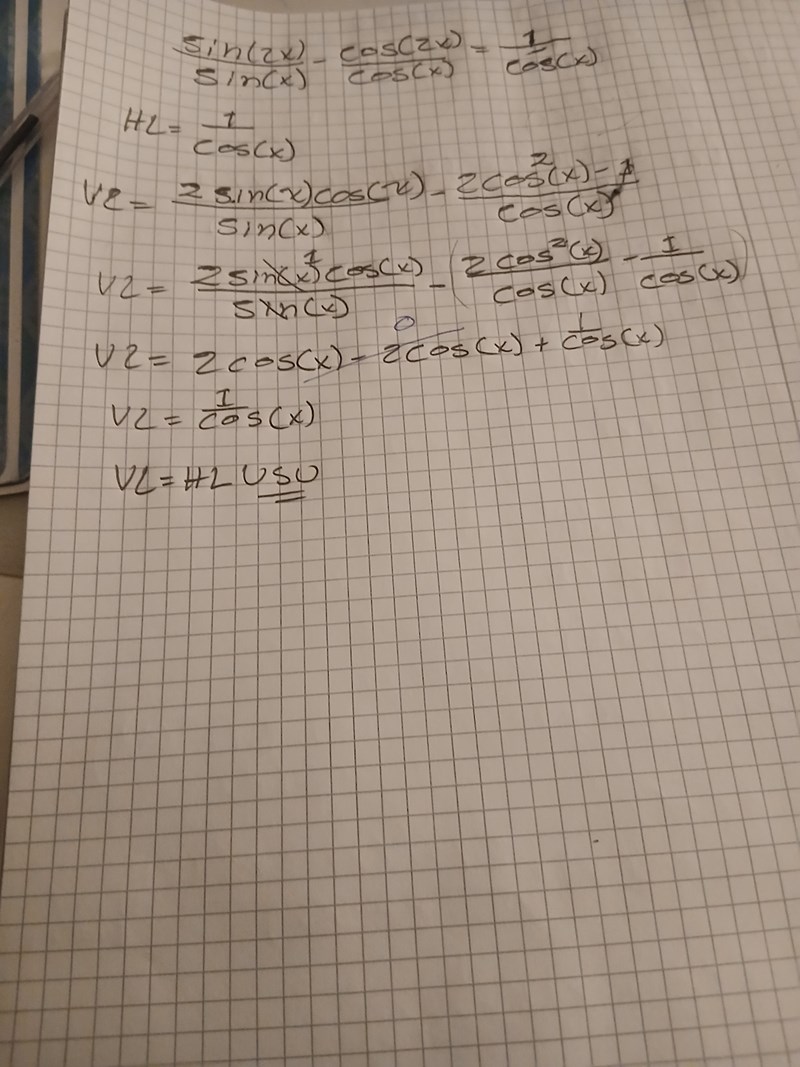 sin(2x)/sin(x) - cos(2x)/cos(x) = 1/cos(x)
HL = 1/cos(x)
VL = 2 sin(x)cos(x)/sin(x) - 2cos²(x)-1/cos(x)
VL = 2 sin(x)¹cos(x)/sin(x) - (2cos²(x)/cos(x) - 1/cos(x))
VL = 2cos(x) - 2cos(x) + 1/cos(x)
0
VL = 1/cos(x)
VL = HL VSV